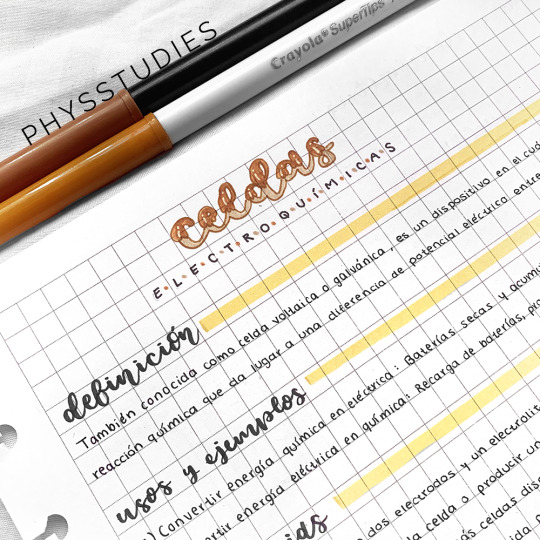 PHYSSTUDIES
Crayola® SuperTips
celdas
E·L·E·C·T·R·O·Q·U·Í·M·I·C·A·S
definición
También conocida como celda voltaica o galvánica, es un dispositivo en el cual
reacción química que da lugar a una diferencia de potencial eléctrica entre
usos y ejemplos
) Convertir energía química en eléctrica: Baterías secas y
energía eléctrica en química: Recarga de baterías,
dos electrodos y un
la celda o producir un
celdas